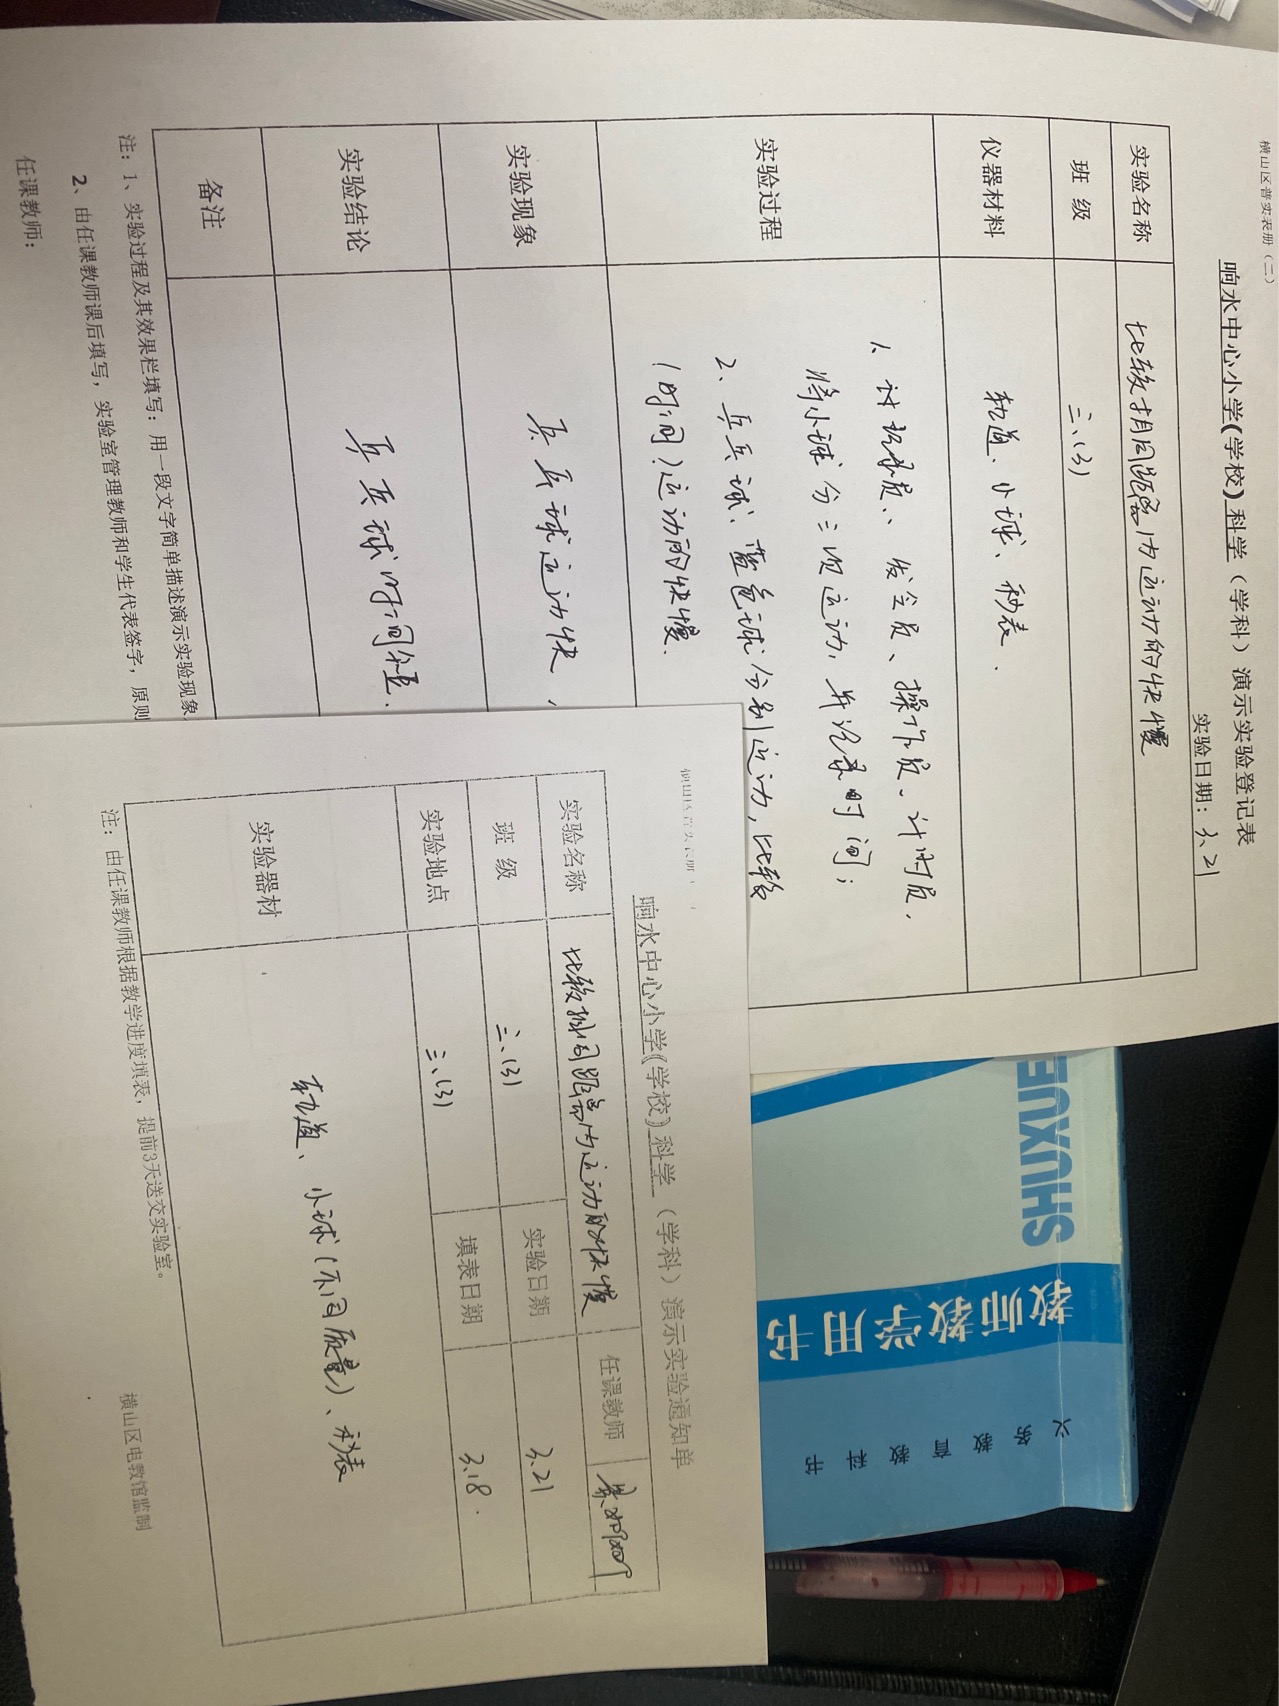 横山区普实表册（二）
响水中心小学(学校)科学（学科）演示实验登记表
实验日期：3.21
实验名称 比较相同距离内运动的快慢
班 级 三、(3)
仪器材料 轨道、小球、秒表.
实验过程
1、计记录员、发令员、操作员、计时员.
将小球分三次运动,并记录时间;
2、乒乓球、蓝色球分别运动,比较
(时间)运动的快慢.
实验现象 乒乓球运动快.
实验结论 乒乓球时间短.
备注
注：1、实验过程及其效果栏填写：用一段文字简单描述演示实验现象
2、由任课教师课后填写，实验室管理教师和学生代表签字，原则
任课教师：
响水中心小学(学校)科学（学科）演示实验通知单
实验名称 比较相同距离内运动的快慢 任课教师
班 级 三、(3) 实验日期 3.21
实验地点 三、(3) 填表日期 3.18.
实验器材 轨道、小球(不同质量)、秒表
注：由任课教师根据教学进度填表，提前3天送交实验室。
横山区电教馆监制
SHUXUE
教师教学用书
义务教育教科书